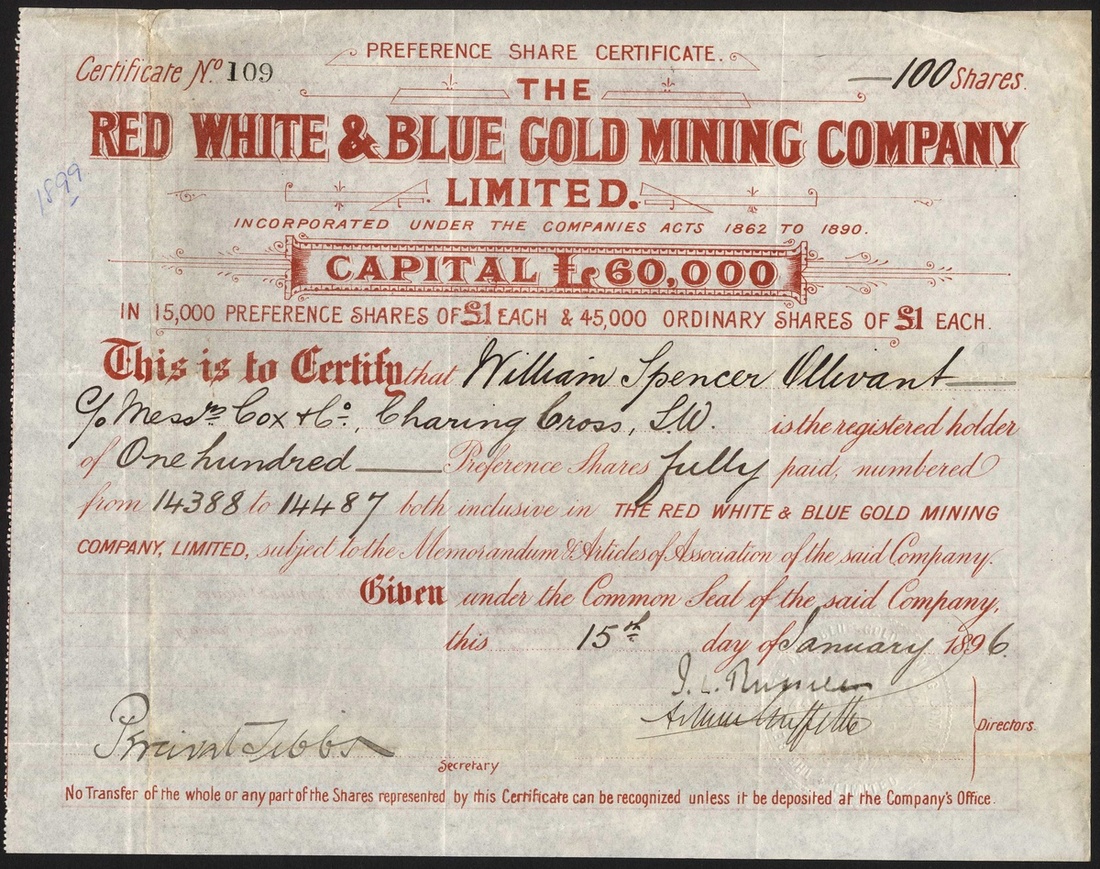 PREFERENCE SHARE CERTIFICATE.
Certificate No. 109
—100 Shares.
THE
RED WHITE & BLUE GOLD MINING COMPANY
LIMITED.
1899
INCORPORATED UNDER THE COMPANIES ACTS 1862 TO 1890.
CAPITAL £60,000
IN 15,000 PREFERENCE SHARES OF £1 EACH & 45,000 ORDINARY SHARES OF £1 EACH.
This is to Certify that William Spencer Ollivant
c/o Messrs Cox & Co., Charing Cross, S.W. is the registered holder
of One hundred Preference Shares fully paid, numbered
from 14388 to 14487 both inclusive in THE RED WHITE & BLUE GOLD MINING
COMPANY, LIMITED, subject to the Memorandum & Articles of Association of the said Company.
Given under the Common Seal of the said Company,
this 15th day of January 1896.
J. L.
Arthur Griffiths
Directors.
Percival Tibbs
Secretary
No Transfer of the whole or any part of the Shares represented by this Certificate can be recognized unless it be deposited at the Company's Office.